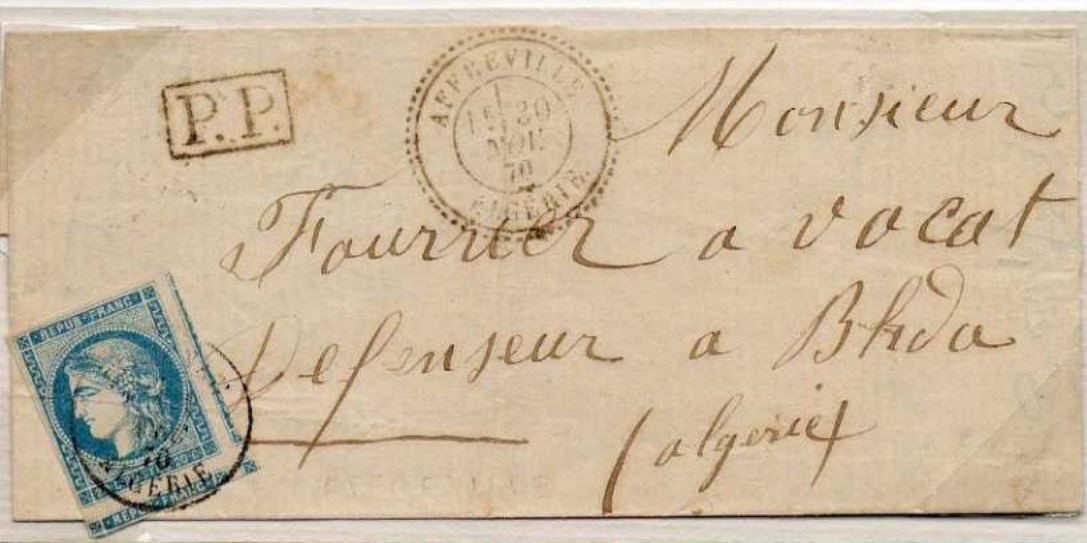 P.P.
AFFREVILLE
30
NOV
70
ALGERIE
Monsieur
Fourrier a vocat
Defenseur a Blida
(algerie)
REPUB·FRANC
70
GERIE
REPUB·FRANC